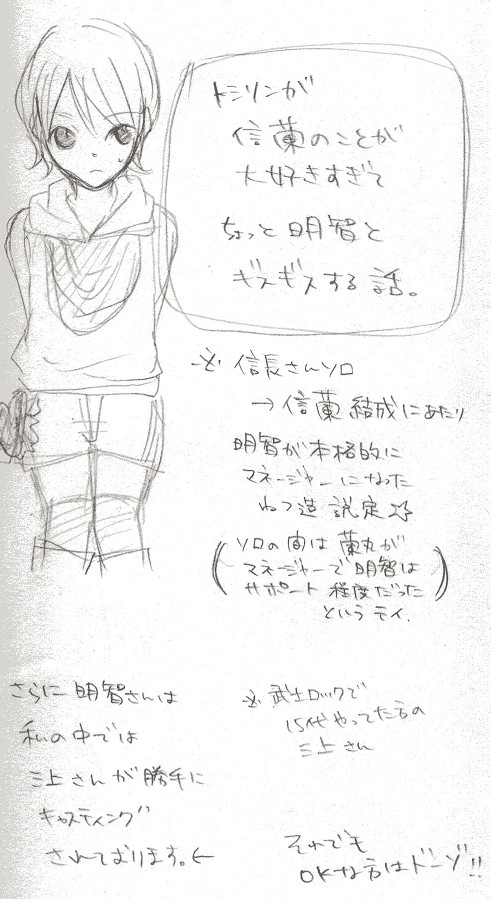 トシリンが
信蘭のことが
大好きすぎて
ちょっと明智と
ギスギスする話。
※ 信長さんソロ
→信蘭結成にあたり
明智が本格的に
マネージャーになった
ねつ造設定☆
(ソロの間は蘭丸が
マネージャーで明智は
サポート程度だった
というテイ.)
さらに明智さんは
私の中では
三上さんが勝手に
キャスティング
されております。←
※ 武士ロックで
15代やってた方の
三上さん
それでも
OKな方はドーゾ!!